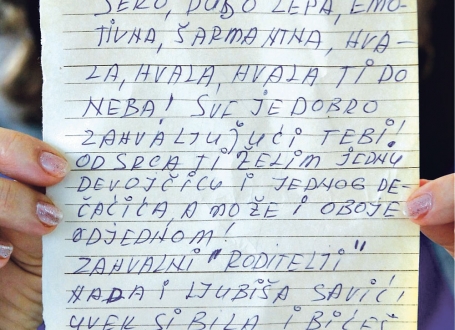 ŠEKO, DUŠO LEPA, EMO-
TIVNA, ŠARMANTNA, HVA-
LA, HVALA, HVALA TI DO
NEBA! SVE JE DOBRO
ZAHVALJUJUĆI TEBI!
OD SRCA TI ŽELIM JEDNU
DEVOJČICU I JEDNOG DE-
ČAČIĆA, A MOŽE I OBOJE
ODJEDNOM!
ZAHVALNI "RODITELJI"
NADA I LJUBIŠA SAVIĆ,
UVEK SI BILA I BIĆEŠ